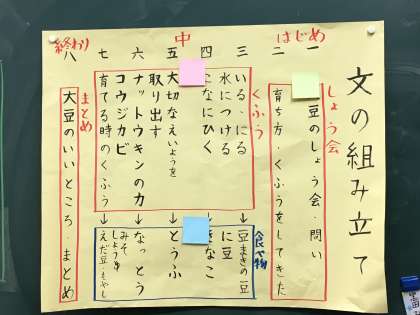 文の組み立て
はじめ
中
終わり
一
二
三
四
五
六
七
八
しょう会
豆のしょう会・問い
育ち方 くふうをしてきた
くふう
いる・にる
水につける
なにひく
大切なえいようを
取り出す
ナットウキンの力
コウジカビ
育てる時のくふう
食べ物
豆まきの豆
に豆
きなこ
とうふ
なっとう
みそ
しょうゆ
えだ豆・もやし
まとめ
大豆のいいところ・まとめ